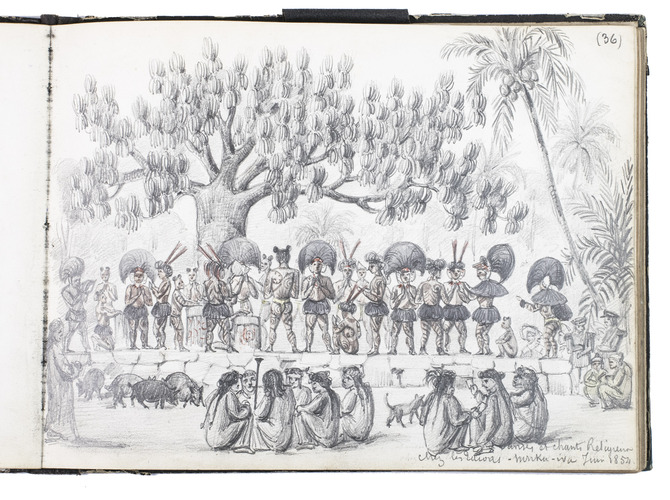 (36)
Danses et chants Religieux
chez les - Nuka-iva Juin 1854